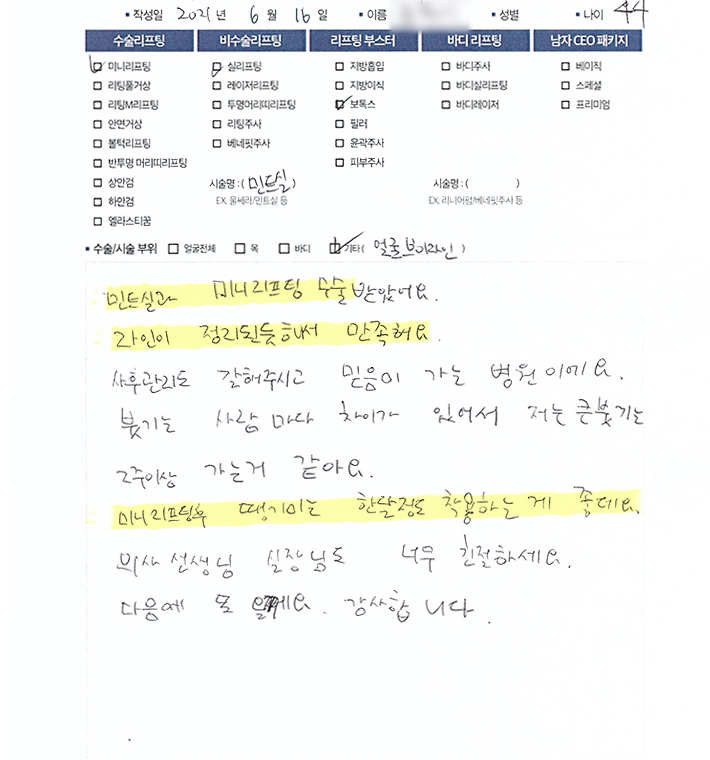 ▪ 작성일 2021 년 6 월 16 일 ▪ 이름 ▪ 성별 ▪ 나이 44
수술리프팅 비수술리프팅 리프팅 부스터 바디 리프팅 남자 CEO 패키지
미니리프팅 실리프팅 지방흡입 바디주사 베이직
리팅풀거상 레이저리프팅 지방이식 바디실리프팅 스페셜
리팅M리프팅 투명머리띠리프팅 보톡스 바디레이저 프리미엄
안면거상 리팅주사 필러
볼턱리프팅 베네핏주사 윤곽주사
반투명 머리띠리프팅 피부주사
상안검 시술명 : ( 민트실 ) 시술명 : ( )
하안검 EX. 울쎄라/민트실 등 EX. 리니어펌/베네핏주사 등
엘라스티꿈
▪ 수술/시술 부위 얼굴전체 목 바디 기타 ( 얼굴브이라인 )
민트실과 미니리프팅 수술 받았어요.
라인이 정리된듯해서 만족해요
사후관리도 잘해주시고 믿음이 가는 병원이에요.
붓기는 사람마다 차이가 있어서 저는 큰붓기는
2주이상 가는거 같아요.
미니리프팅후 땡기미는 한달정도 착용하는 게 좋데요.
의사 선생님 실장님도 너무 친절하세요.
다음에 또 올게요. 감사합니다.